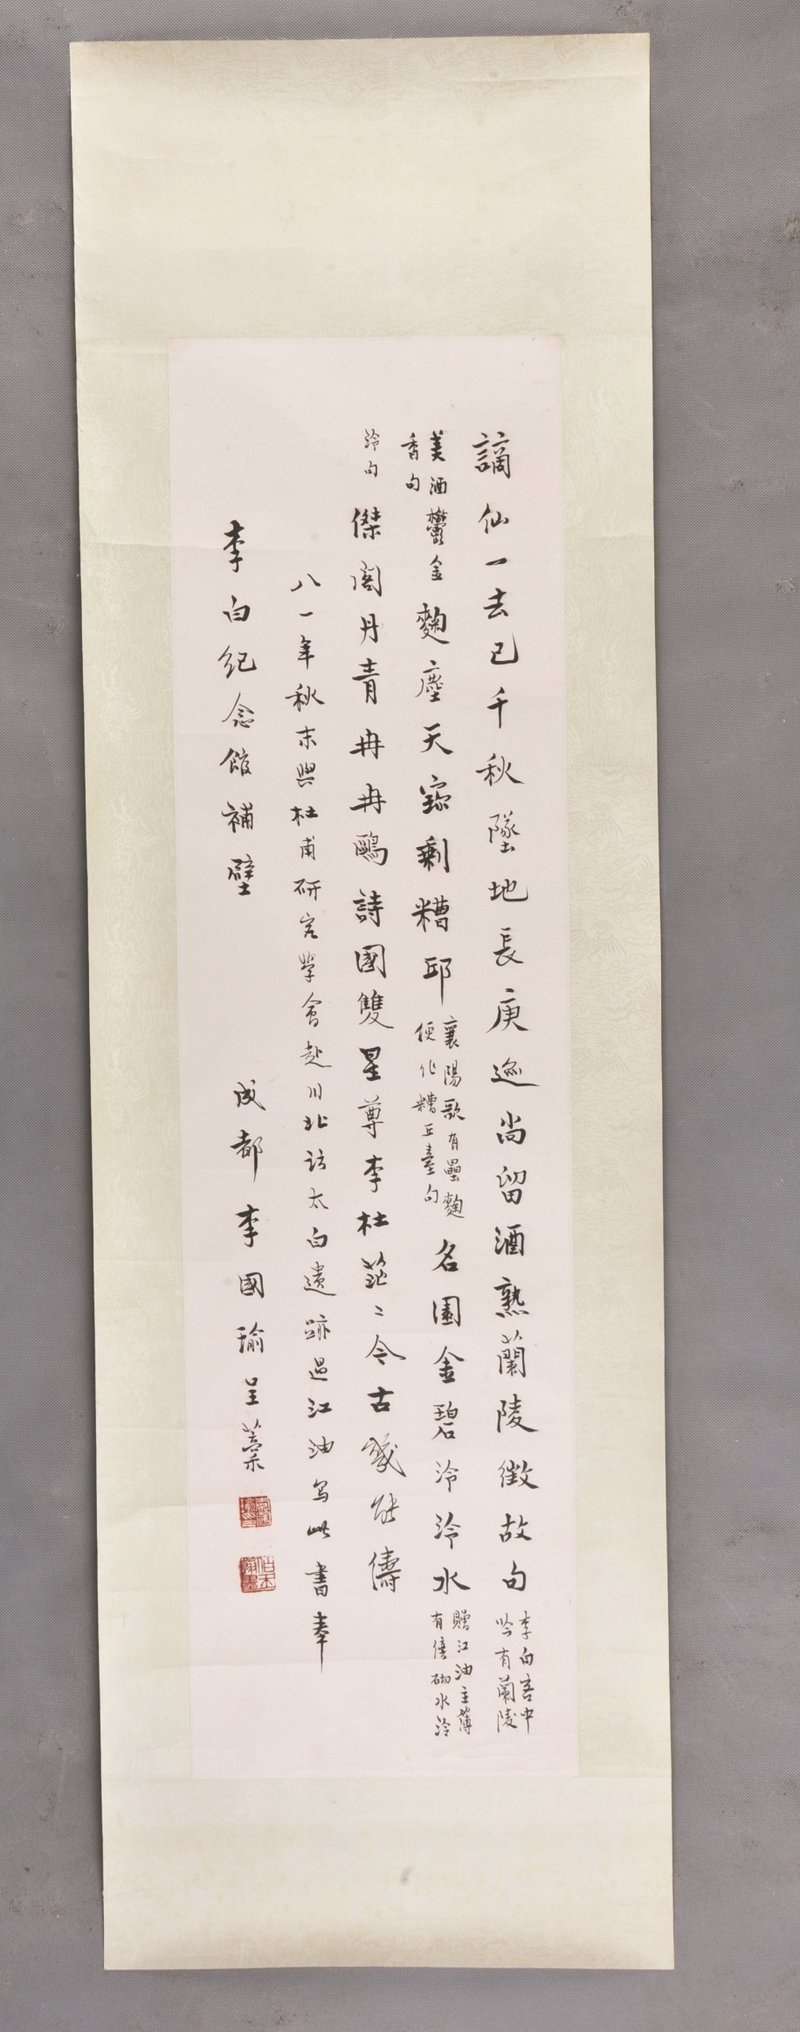 謫仙一去已千秋墜地長庚迹尚留酒熟蘭陵徵故句李白客中吟有蘭陵
美酒鬱金香句麴塵天寶剩糟邱襄陽歌有壘麴便作糟丘臺句名園金碧泠泠水贈江油主薄有倩砌水泠
泠句傑閣丹青冉冉鷗詩國雙星尊李杜茫〻今古幾能儔
八一年秋末與杜甫研究學會赴川北訪太白遺跡過江油写此書奉
李白纪念館補壁
成都李國瑜呈藁